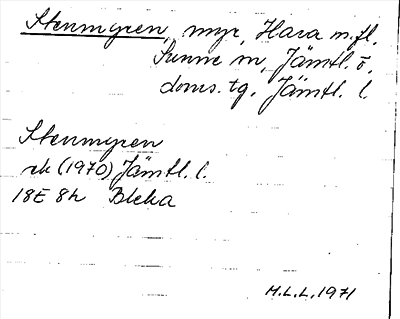 Stenmyren, myr, Hara m.fl.
Sunne sn, Jämtl. ö.
doms.tg. Jämtl. l.
Stenmyren
rk (1970) Jämtl. l.
18E 8h Bleka
M.L.L. 1971